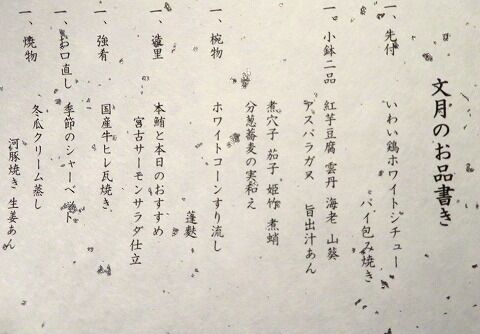 文月のお品書き
一、先付
いわい鶏ホワイトシチュー
パイ包み焼き
一、小鉢二品
紅芋豆腐 雲丹 海老 山葵
アスパラガス 旨出汁あん
煮穴子 茄子 姫作 煮蛸
分葱蕎麦の実和え
一、椀物
ホワイトコーンすり流し
蓬麩
一、造里
本鮪と本日のおすすめ
宮古サーモンサラダ仕立
一、強肴
国産牛ヒレ瓦焼き
一、お口直し
季節のシャーベット
一、焼物
冬瓜クリーム蒸し
河豚焼き 生姜あん